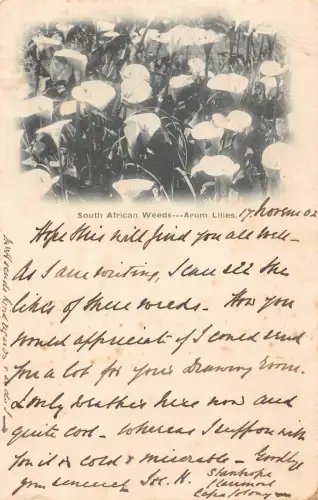 South African Weeds---Arum Lilies.
17. Novem 02
Hope this will find you all well -
As I am writing, I can see the
likes of these weeds. How you
would appreciate if I could send
you a lot for your drawing room.
Lovely weather here now and
quite cool - whereas I suppose with
you it is cold & miserable - Goodbye
yours sincerely Jos. H.
Stanhope
Claremont
Cape Colony